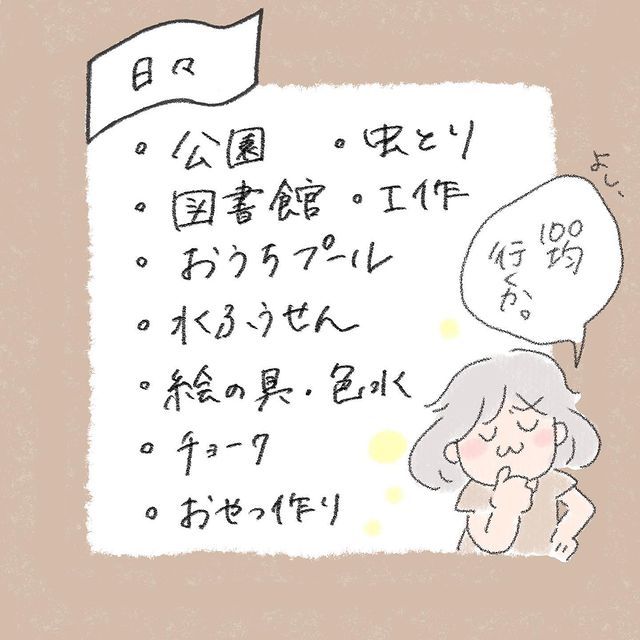 日々
・公園 ・虫とり
・図書館 ・工作
・おうちプール
・水ふうせん
・絵の具・色水
・チョーク
・おやつ作り
よし、
100均
行くか。